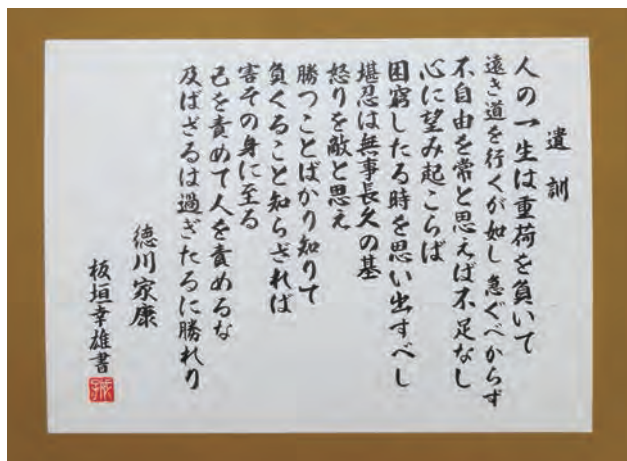 遺訓
人の一生は重荷を負いて
遠き道を行くが如し 急ぐべからず
不自由を常と思えば不足なし
心に望み起こらば
困窮したる時を思い出すべし
堪忍は無事長久の基
怒りを敵と思え
勝つことばかり知りて
負くること知らざれば
害その身に至る
己を責めて人を責めるな
及ばざるは過ぎたるに勝れり
徳川家康
板垣幸雄書